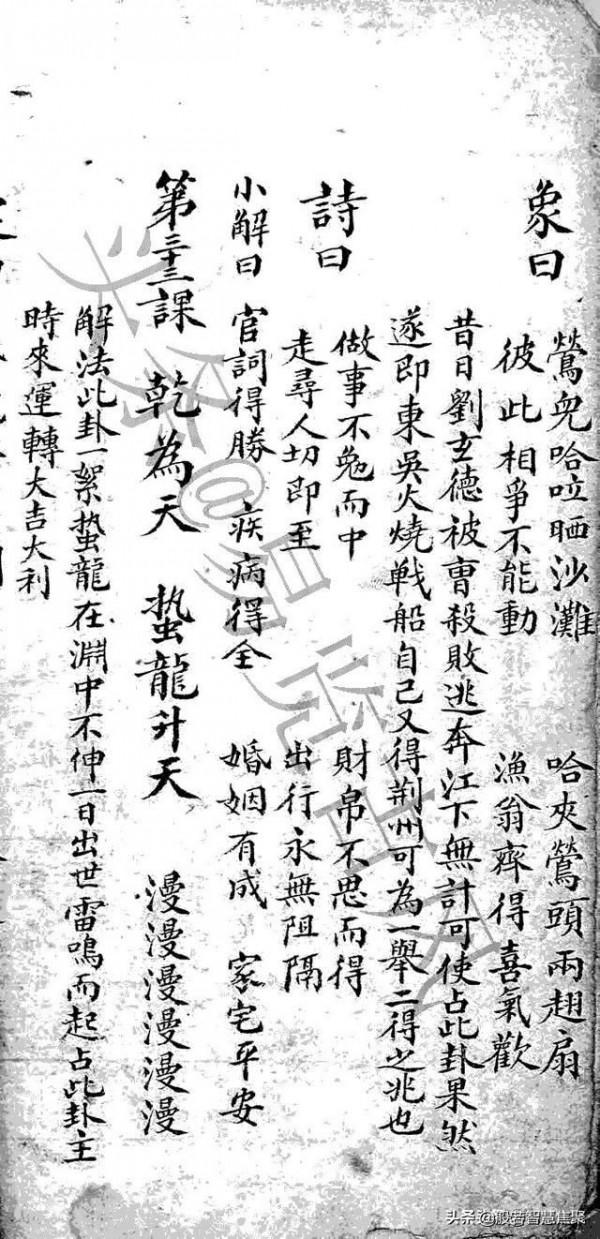 象曰
鶯鬼哈咬晒沙灘 哈夾鶯頭兩翅扇
彼此相爭不能動 漁翁齊得喜氣歡
昔日劉玄德被曹殺敗逃奔江下無計可使占此卦果然
遂即東吳火燒戰船自己又得荆州可為一舉二得之兆也
詩曰
做事不勉而中 財帛不思而得
走尋人切即至 出行永無阻隔
小解曰 官詞得勝 疾病得全 婚姻有成 家宅平安
第三十三課 乾為天 蛰龍升天 漫漫漫漫漫漫
解法此卦一絮蛰龍在淵中不伸一日出世雷鳴而起占此卦主
時來運轉大吉大利
头条@易亮古风
头条@般若智慧焦聚